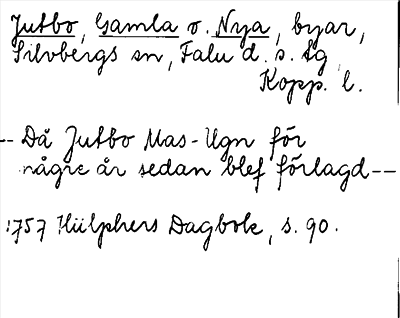 Jutbo, Gamla o. Nya, byar,
Silvbergs sn, Falu d. s. tg
Kopp. l.
-- Då Jutbo Mas-Ugn för
någre år sedan blef förlagd --
1757 Hülphers Dagbok, s. 90.